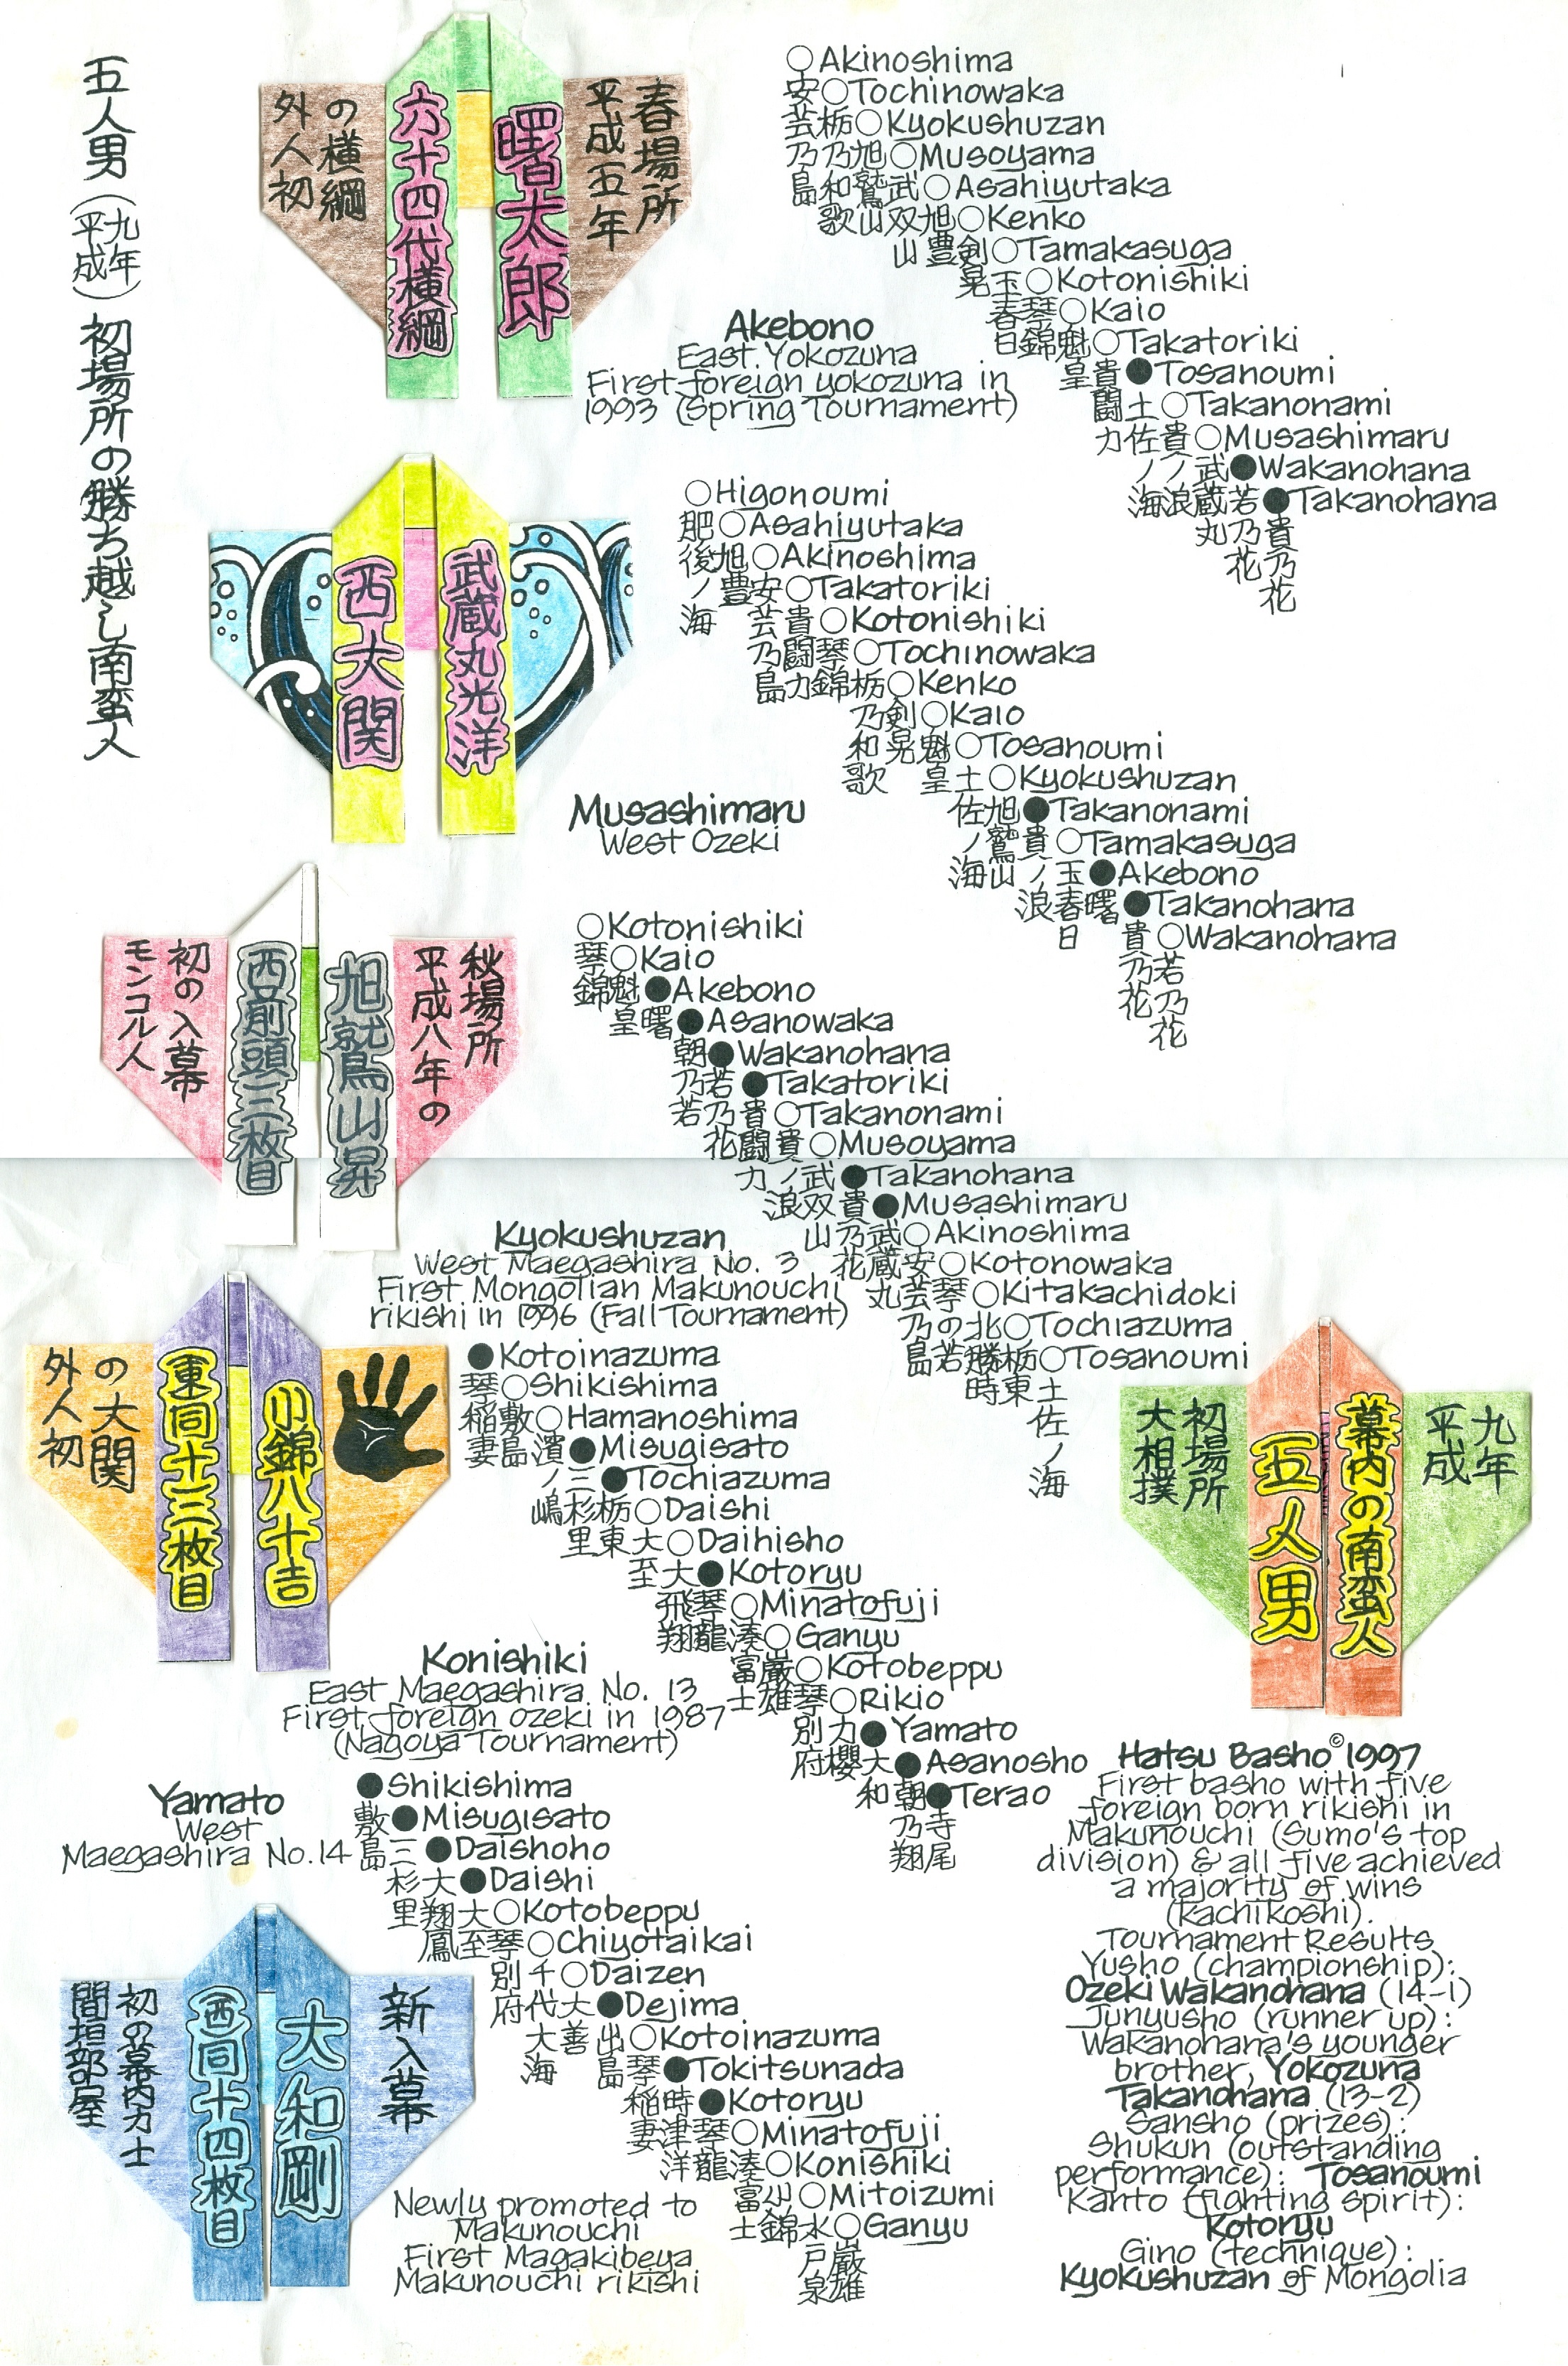 五人男（平成九年）初場所の勝ち越し南蛮人
春場所
平成五年
曙太郎
六十四代横綱
の横綱
外人初
Akebono
East Yokozuna
First foreign yokozuna in
1993 (Spring Tournament)
○Akinoshima
○Tochinowaka
○Kyokushuzan
○Musoyama
○Asahiyutaka
○Kenko
○Tamakasuga
○Kotonishiki
○Kaio
○Takatoriki
●Tosanoumi
○Takanonami
○Musashimaru
●Wakanohana
●Takanohana
安芸乃島
栃乃和歌
旭鷲山
武双山
旭豊
剣晃
玉春日
琴錦
魁皇
貴闘力
土佐ノ海
貴ノ浪
武蔵丸
若乃花
貴乃花
武蔵丸光洋
西大関
Musashimaru
West Ozeki
○Higonoumi
○Asahiyutaka
○Akinoshima
○Takatoriki
○Kotonishiki
○Tochinowaka
○Kenko
○Kaio
○Tosanoumi
○Kyokushuzan
●Takanonami
○Tamakasuga
●Akebono
●Takanohana
○Wakanohana
肥後ノ海
旭豊
安芸乃島
貴闘力
琴錦
栃乃和歌
剣晃
魁皇
土佐ノ海
旭鷲山
貴ノ浪
玉春日
曙
貴乃花
若乃花
秋場所
平成八年の
旭鷲山昇
西前頭三枚目
初の入幕
モンコル人
Kyokushuzan
West Maegashira No. 3
First Mongolian Makunouchi
rikishi in 1996 (Fall Tournament)
○Kotonishiki
○Kaio
●Akebono
●Asanowaka
●Wakanohana
●Takatoriki
○Takanonami
○Musoyama
●Takanohana
●Musashimaru
○Akinoshima
○Kotonowaka
○Kitakachidoki
○Tochiazuma
○Tosanoumi
琴錦
魁皇
曙
朝乃若
若乃花
貴闘力
貴ノ浪
武双山
貴乃花
武蔵丸
安芸乃島
琴の若
北勝時
栃東
土佐ノ海
小錦八十吉
東同十三枚目
の大関
外人初
Konishiki
East Maegashira No. 13
First foreign ozeki in 1987
(Nagoya Tournament)
●Kotoinazuma
○Shikishima
○Hamanoshima
●Misugisato
●Tochiazuma
○Daishi
○Daihisho
●Kotoryu
○Minatofuji
○Ganyu
○Kotobeppu
○Rikio
●Yamato
●Asanosho
●Terao
琴稲妻
敷島
濱ノ嶋
三杉里
栃東
大至
大飛翔
琴龍
湊富士
巌雄
琴別府
力櫻
大和
朝乃翔
寺尾
新入幕
大和剛
西同十四枚目
初の幕内力士
間垣部屋
Yamato
West
Maegashira No.14
Newly promoted to
Makunouchi
First Magakibeya
Makunouchi rikishi
●Shikishima
●Misugisato
●Daishoho
●Daishi
○Kotobeppu
○Chiyotaikai
○Daizen
●Dejima
○Kotoinazuma
●Tokitsunada
●Kotoryu
○Minatofuji
○Konishiki
○Mitoizumi
○Ganyu
敷島
三杉里
大翔鳳
大至
琴別府
千代大海
大善
出島
琴稲妻
時津洋
琴龍
湊富士
小錦
水戸泉
巌雄
平成九年
幕内の南蛮人
五人男
初場所
大相撲
Hatsu Basho©1997
First basho with five
foreign born rikishi in
Makunouchi (Sumo's top
division) & all five achieved
a majority of wins
(kachikoshi).
Tournament Results
Yusho (championship):
Ozeki Wakanohana (14-1)
Junyusho (runner up):
Wakanohana's younger
brother, Yokozuna
Takanohana (13-2)
Sansho (prizes):
Shukun (outstanding
performance): Tosanoumi
Kanto (fighting spirit):
Kotoryu
Gino (technique):
Kyokushuzan of Mongolia